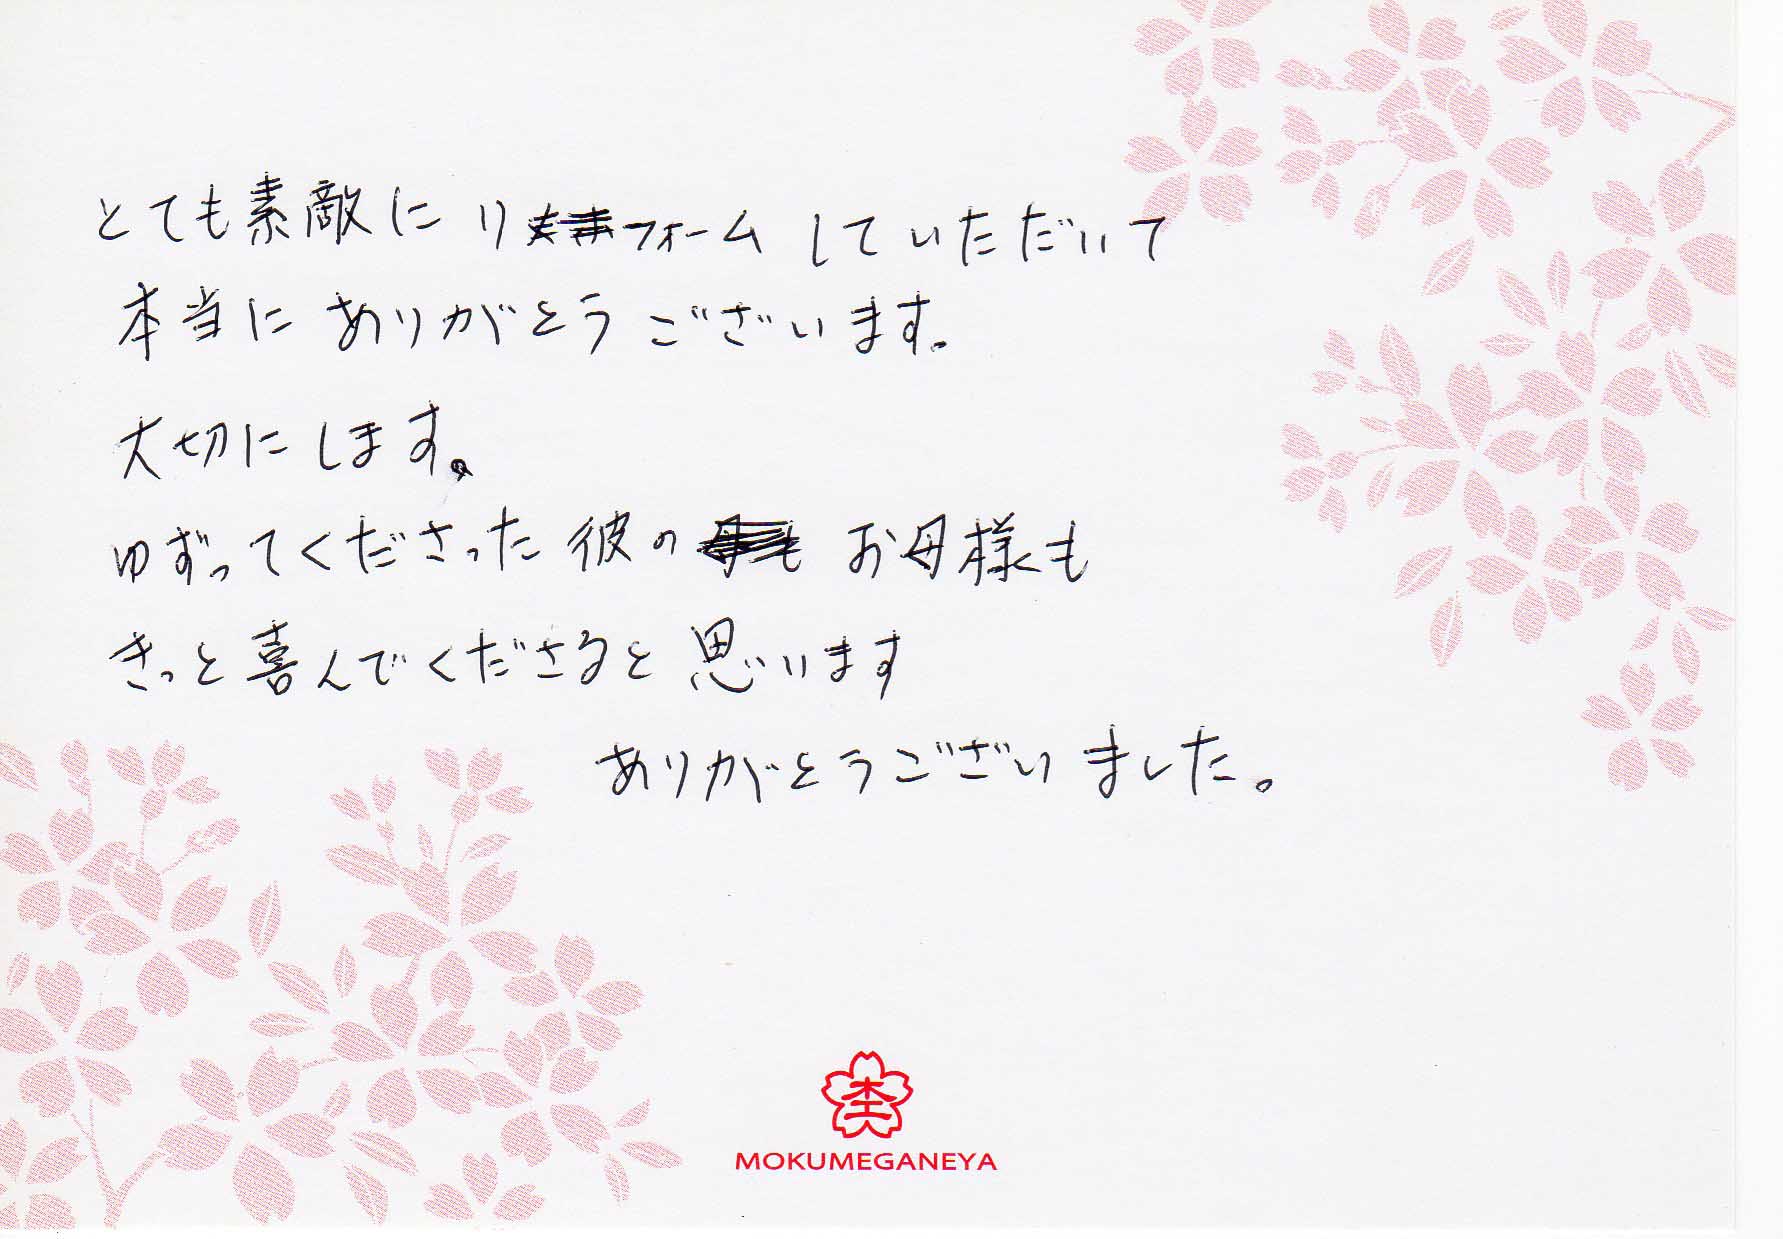 とても素敵にリフォームしていただいて
本当にありがとうございます。
大切にします。
ゆずってくださった彼のお母様も
きっと喜んでくださると思います
ありがとうございました。
MOKUMEGANEYA